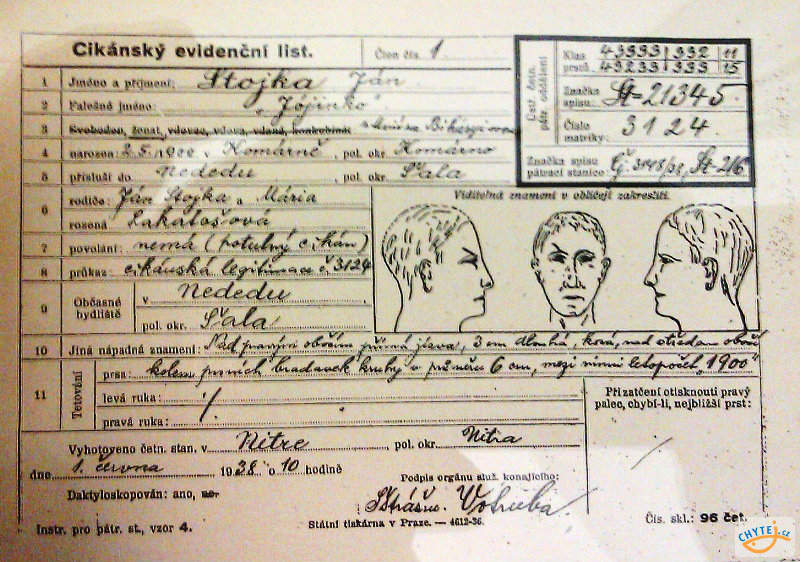 Cikánský evidenční list. Člen čís. 1
1 Jméno a příjmení: Stojka Ján
2 Falešné jméno: „Jojinko“
3 Svoboden, ženat, vdovec, vdova, vdaná, konkubinát
4 narozen: 2.5.1900 v Komárně, pol. okr. Komárno
5 přísluší do Nededu, pol. okr. Šala
6 rodiče: Ján Stojka a Mária
rozená Lakatošová
7 povolání: nemá (potulný cikán)
8 průkaz: cikánská legitimace č. 3124
9 Občasné bydliště v Nededu
pol. okr. Šala
10 Jiná nápadná znamení: Nad pravým obočím přímá jizva, 3 cm dlouhá, kosá, nad středem obočí
11 Tetování prsa: kolem prsních bradavek kruhy v průměru 6 cm, mezi nimi letopočet „1900“
levá ruka:
pravá ruka:
Vyhotoveno četn. stan. v Nitre, pol. okr. Nitra
dne 1. června 1938 o 10 hodině
Daktyloskopován: ano, ne.
Podpis orgánu služ. konajícího:
Strážm. Votruba
Instr. pro pátr. st., vzor 4.
Státní tiskárna v Praze. — 4612-36.
Ústř. četn. pátr. oddělení
Klas prstů 43333 332 11
43233 333 15
Značka spisu: St-21345
Číslo matriky: 3124
Značka spisu pátrací stanice: Čj. 3148/38, St-216
Viditelná znamení v obličeji zakreslíti.
Při zatčení otisknouti pravý
palec, chybí-li, nejbližší prst:
Čís. skl.: 96 čet.
CHYTEJ.cz